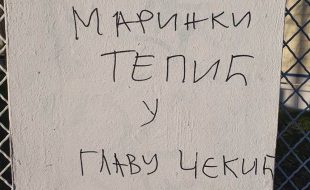 МАРИНКИ
ТЕПИЋ
У
ГЛАВУ ЧЕКИЋ